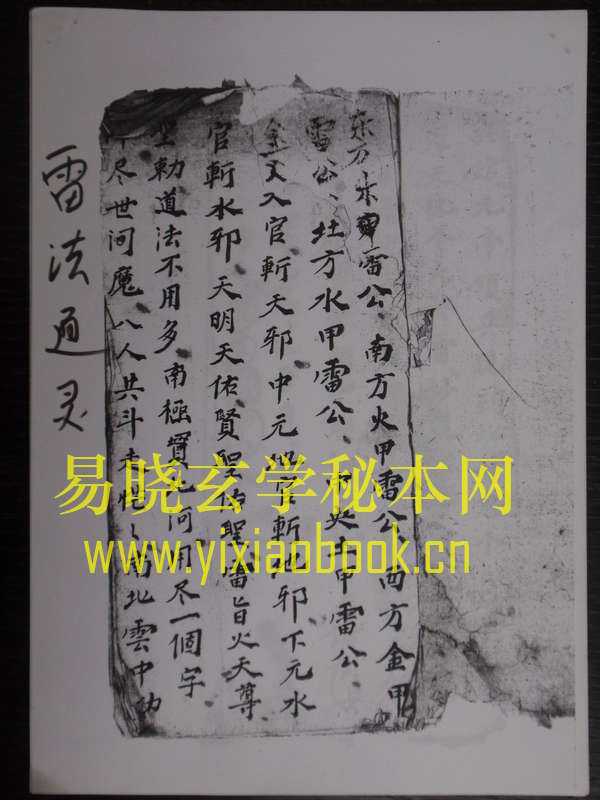 雷法通灵
东方木甲雷公、南方火甲雷公、西方金甲
雷公、北方水甲雷公、中央土甲雷公、
上元天官斬天邪中元地官斬地邪、下元水
官斬水邪、天明天佑賢聖佑聖雷旨火天尊
勅道法不用多、南極寶光河用尽一個字
尽世间魔、八人共斗走忙、南北雲中
易晓玄学秘本网
www.yixiaobook.cn